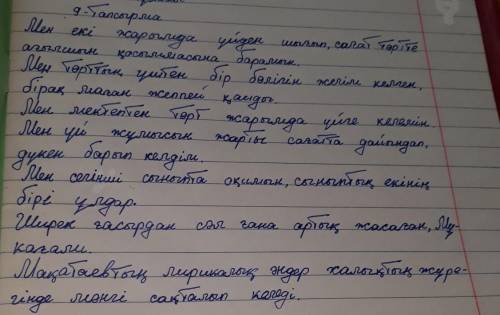 9-тапсырма
Мен екі жарымда үйден шығып, сағат төртте
ағылшын қосымшасына барамын.
Мен төрттің үштен бір бөлігін жегім келген,
бірақ маған жеппей қалды.
Мен мектептен төрт жарымда үйге келемін.
Мен үй жұмысын жарты сағатта дайындап,
дүкен барып келдім.
Мен сегізінші сыныпта оқимын, сыныптың екінің
бірі ұлдар.
Ширек ғасырдан сәл ғана артық жасаған, Мұ-
қағали.
Мақатаевтың лирикалық әндер халықтың жүре-
гінде мәңгі сақталып келеді.